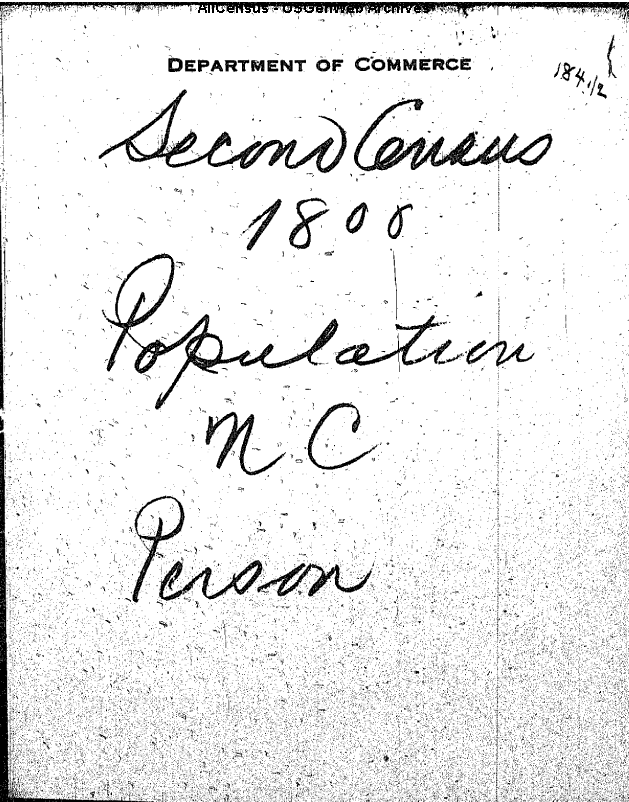 AllCensus - USGenWeb Archives
DEPARTMENT OF COMMERCE
184 1/2
Second Census
1800
Population
N C
Person